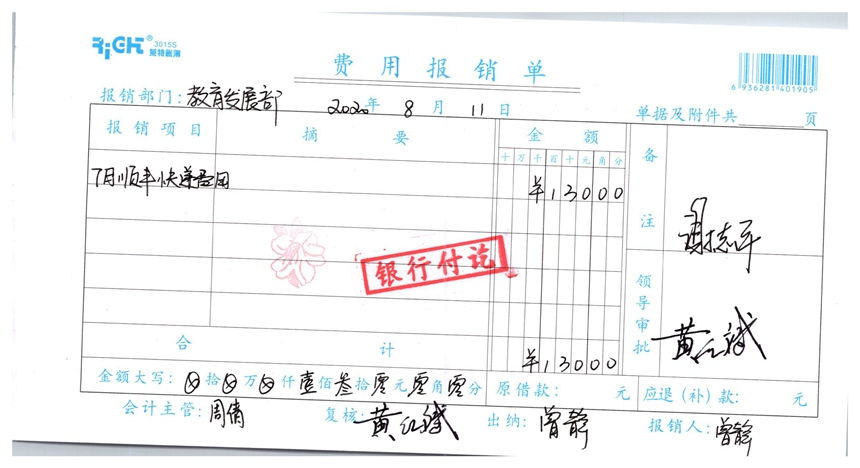 RiGHT® 3015S
莱特账簿
费用报销单
6 936281 401905
报销部门:教育发展部 2020年8月11日 单据及附件共 页
报销项目 摘要 金额 备注
十 万 千 百 十 元 角 分
7月顺丰快递费用 ¥13000
谢志军
银行付讫
领导审批 黄红斌
合计 ¥13000
金额大写:⊗拾⊗万⊗仟壹佰叁拾零元零角零分 原借款: 元 应退(补)款: 元
会计主管:周倩 复核:黄红斌 出纳:曾静 报销人:曾静